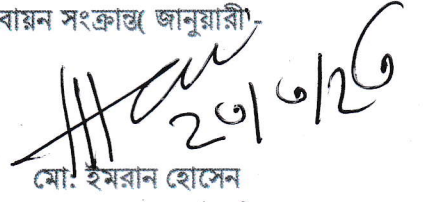 বায়ন সংক্রান্ত( জানুয়ারী'-
২৩/৩/২৩
মো: ইমরান হোসেন